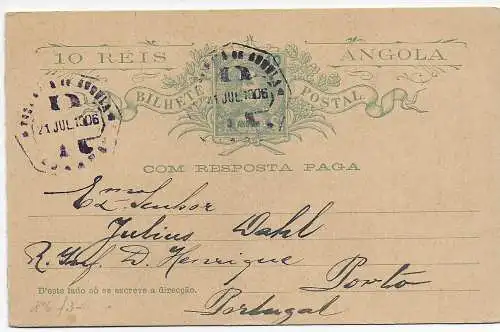 10 RÉIS ANGOLA
BILHETE POSTAL
21 JUL. 1906
21 JUL. 1906
COM RESPOSTA PAGA
Senhor
Julius Dahl
R. Inf. D. Henrique
Porto
D'este lado só se escreve a direcção.
Portugal